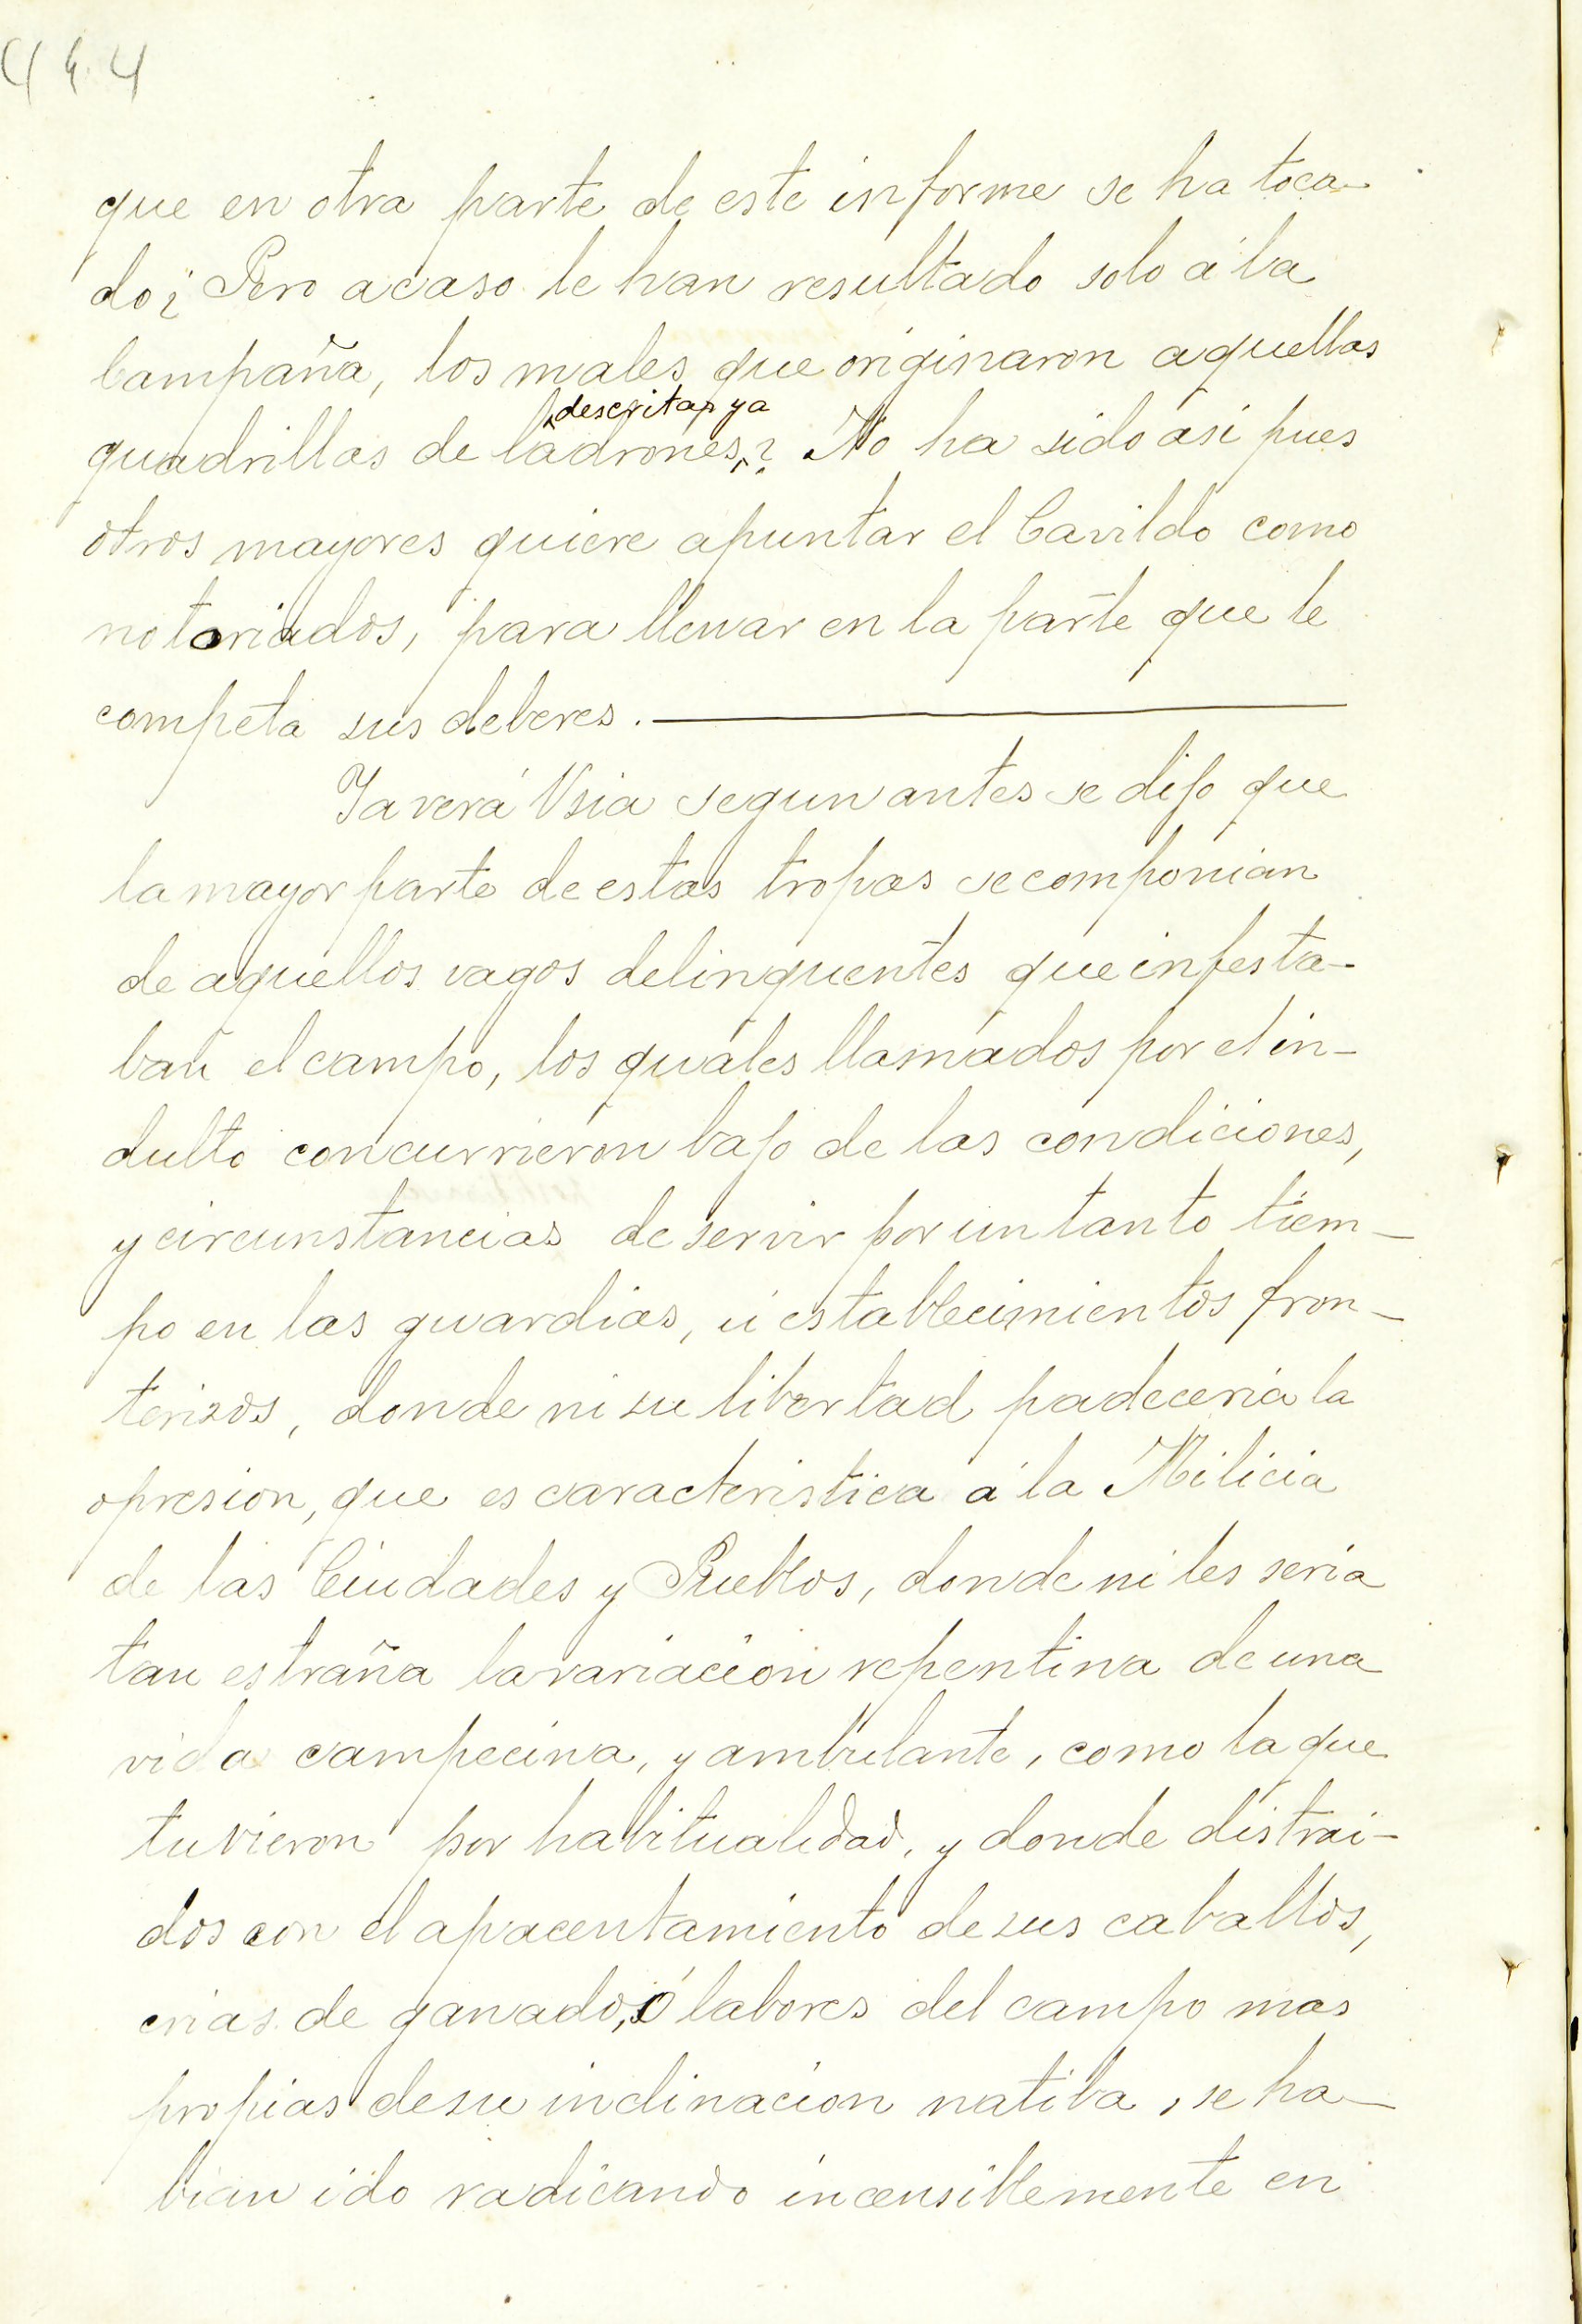 444
que en otra parte de este informe se ha toca-
do ¿Pero acaso le han resultado solo á la
Campaña, los males que originaron aquellas
descritas ya
quadrillas de ladrones? No ha sido asi pues
otros mayores quiere apuntar el Cavildo como
notoriados, para llenar en la parte que le
competa sus deberes. —
Ya verá Vsia segun antes se dijo que
la mayor parte de estas tropas se componian
de aquellos vagos delinquentes que infesta-
ban el campo, los quales llamados por el in-
dulto concurrieron bajo de las condiciones,
y circunstancias de servir por un tanto tiem-
po en las guardias, ú establecimientos fron-
terizos, donde ni su libertad padeceria la
opresion, que es caracteristica á la Milicia
de las Ciudades y Pueblos, donde ni les seria
tan estraña la variacion repentina de una
vida campecina, y ambulante, como la que
tuvieron por habitualidad, y donde distrai-
dos con el apacentamiento de sus caballos,
crias de ganado, ó labores del campo mas
propias de su inclinacion natiba, se ha-
bian ido radicando incensiblemente en